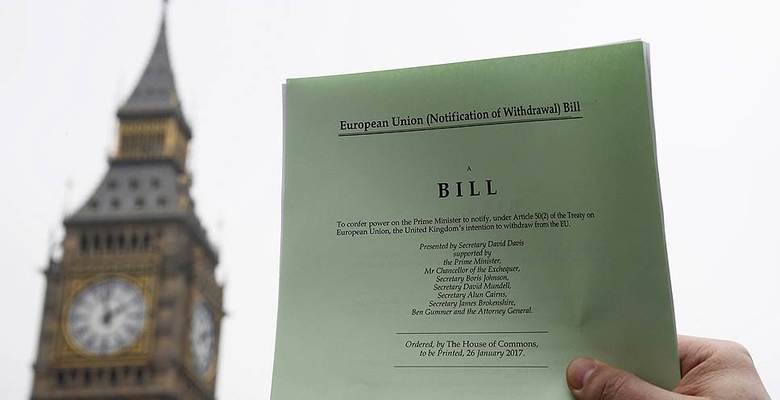 European Union (Notification of Withdrawal) Bill
A
BILL
To confer power on the Prime Minister to notify, under Article 50(2) of the Treaty on
European Union, the United Kingdom's intention to withdraw from the EU.
Presented by Secretary David Davis
supported by
the Prime Minister,
Mr Chancellor of the Exchequer,
Secretary Boris Johnson,
Secretary David Mundell,
Secretary Alun Cairns,
Secretary James Brokenshire,
Ben Gummer and the Attorney General.
Ordered, by The House of Commons,
to be Printed, 26 January 2017.